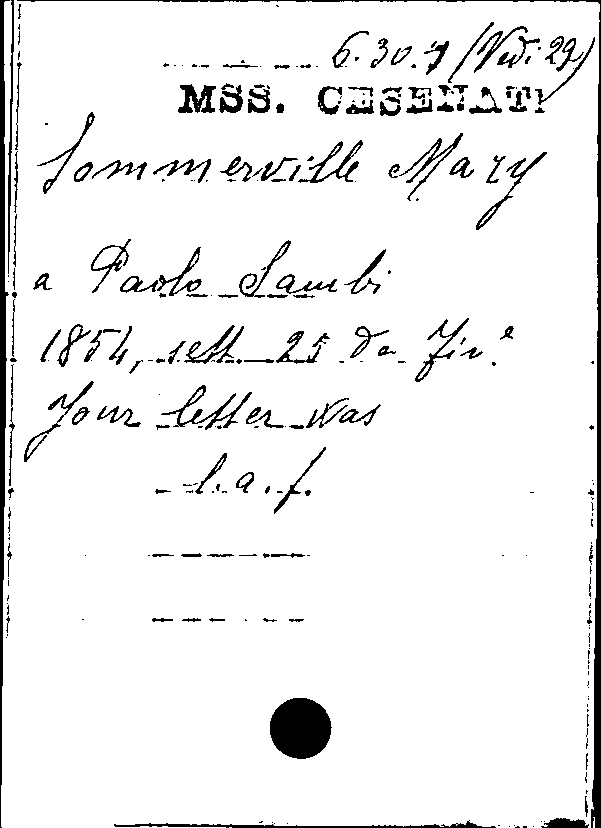 6.30.7 (Vedi 29)
MSS. CESENATI
Sommerville Mary
a Paolo Sambi
1854, sett. 25 da Fir.e
Your letter was
l.a.f.